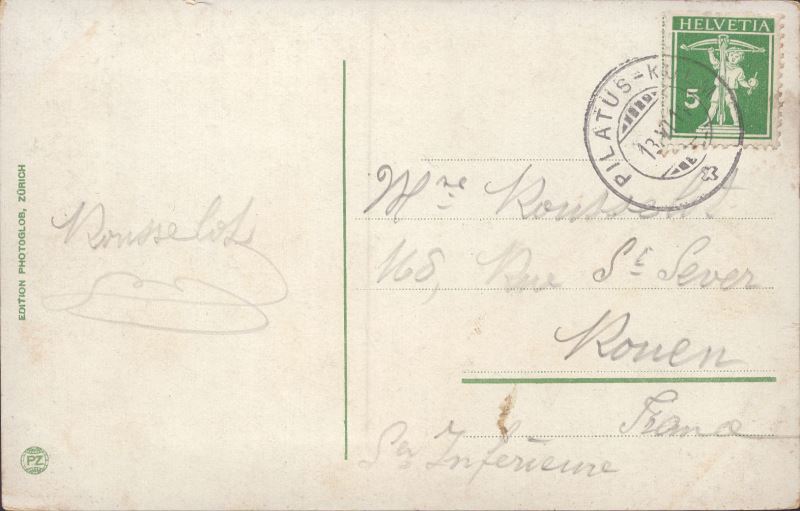 EDITION PHOTOGLOB, ZÜRICH
PZ
Rousselot
HELVETIA
5
PILATUS-K
13.VII
Mme Rousselot
168, Rue St Sever
Rouen
France
Sne Inférieure